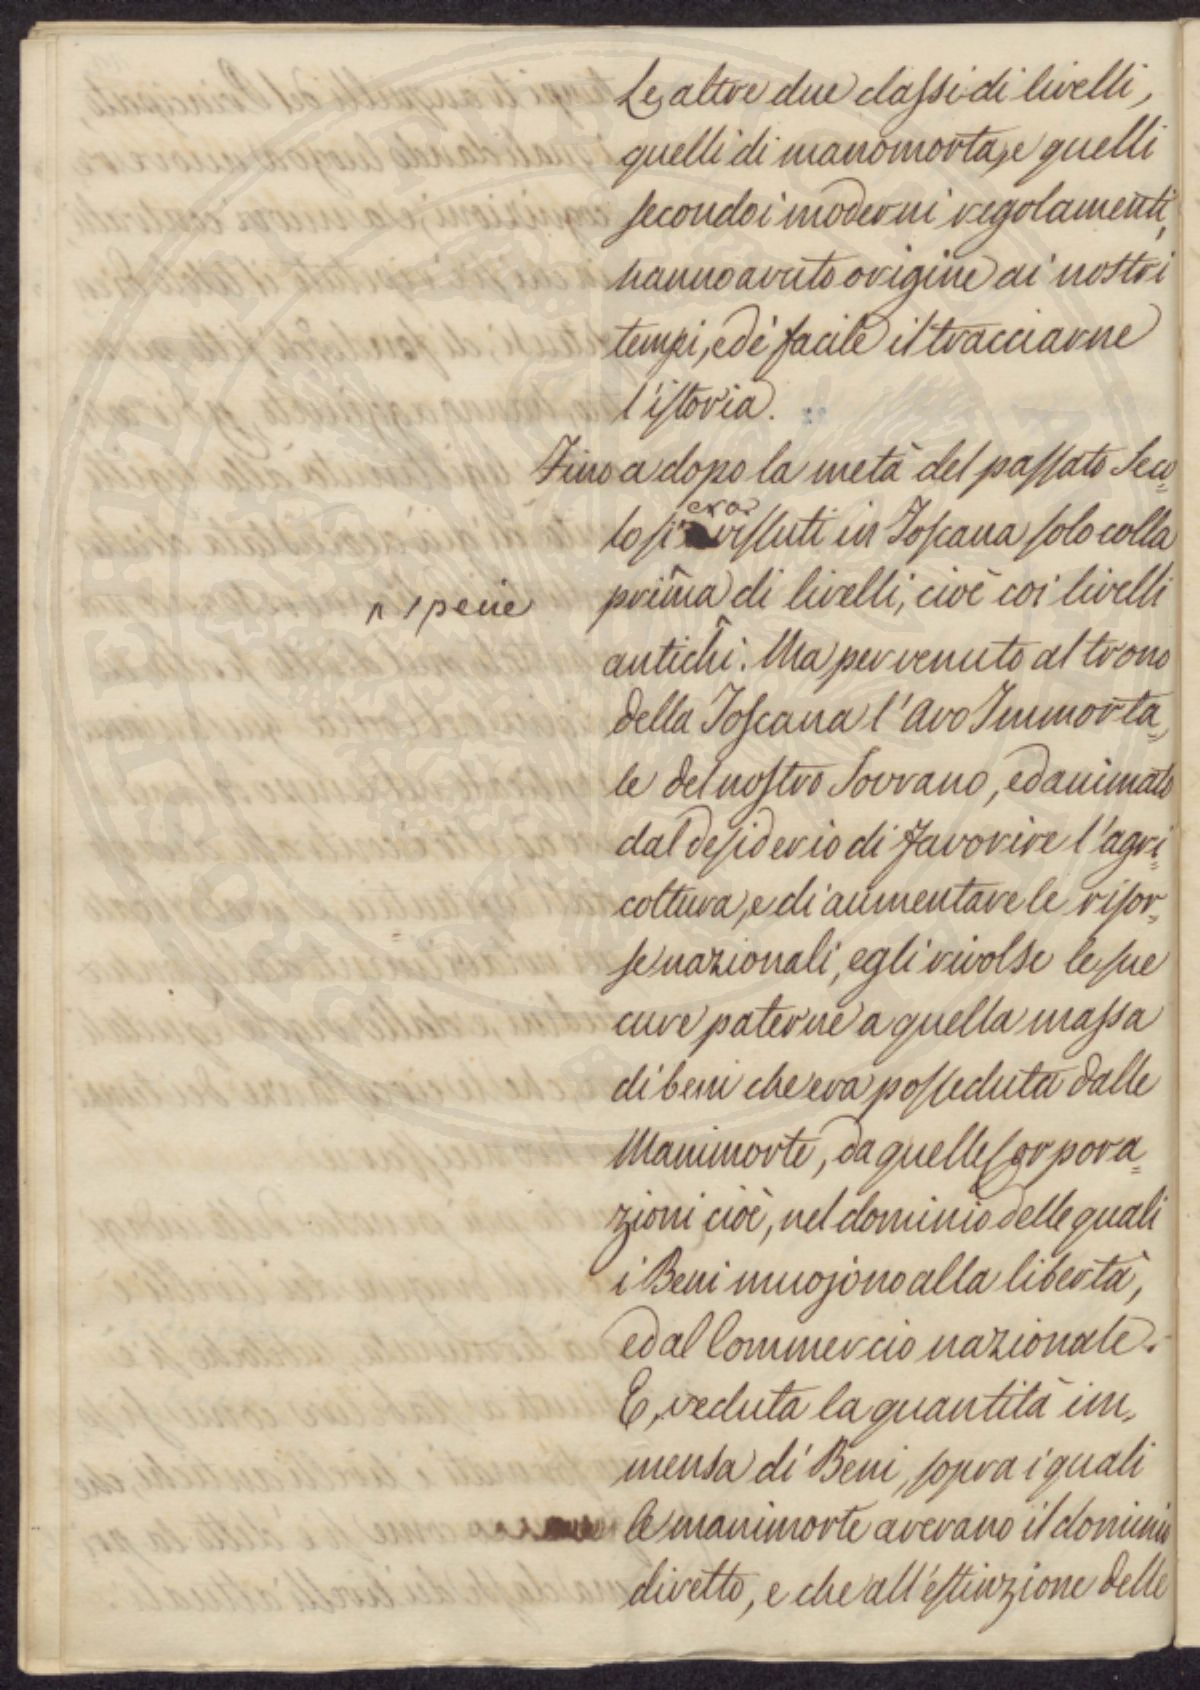 Le altre due classi di livelli,
quelli di manomorta, e quelli
secondo i moderni regolamenti,
hanno avuto origine ai nostri
tempi, ed è facile il tracciarne
l'istoria.
Fino a dopo la metà del passato Seco=
lo si era vissuti in Toscana solo colla
prima di livelli, cioè coi livelli
^ specie
antichi. Ma pervenuto al trono
della Toscana l'Avo Immorta=
le del nostro Sovrano, ed animato
dal desiderio di favorire l'agri=
coltura, e di aumentare le risor=
se nazionali, egli rivolse le sue
cure paterne a quella massa
di beni che era posseduta dalle
Manimorte, da quelle Corpora=
zioni cioè, nel dominio delle quali
i Beni muojono alla libertà,
ed al Commercio nazionale.
E, veduta la quantità im=
mensa di Beni, sopra i quali
le manimorte avevano il dominio
diretto, e che all'estinzione delle